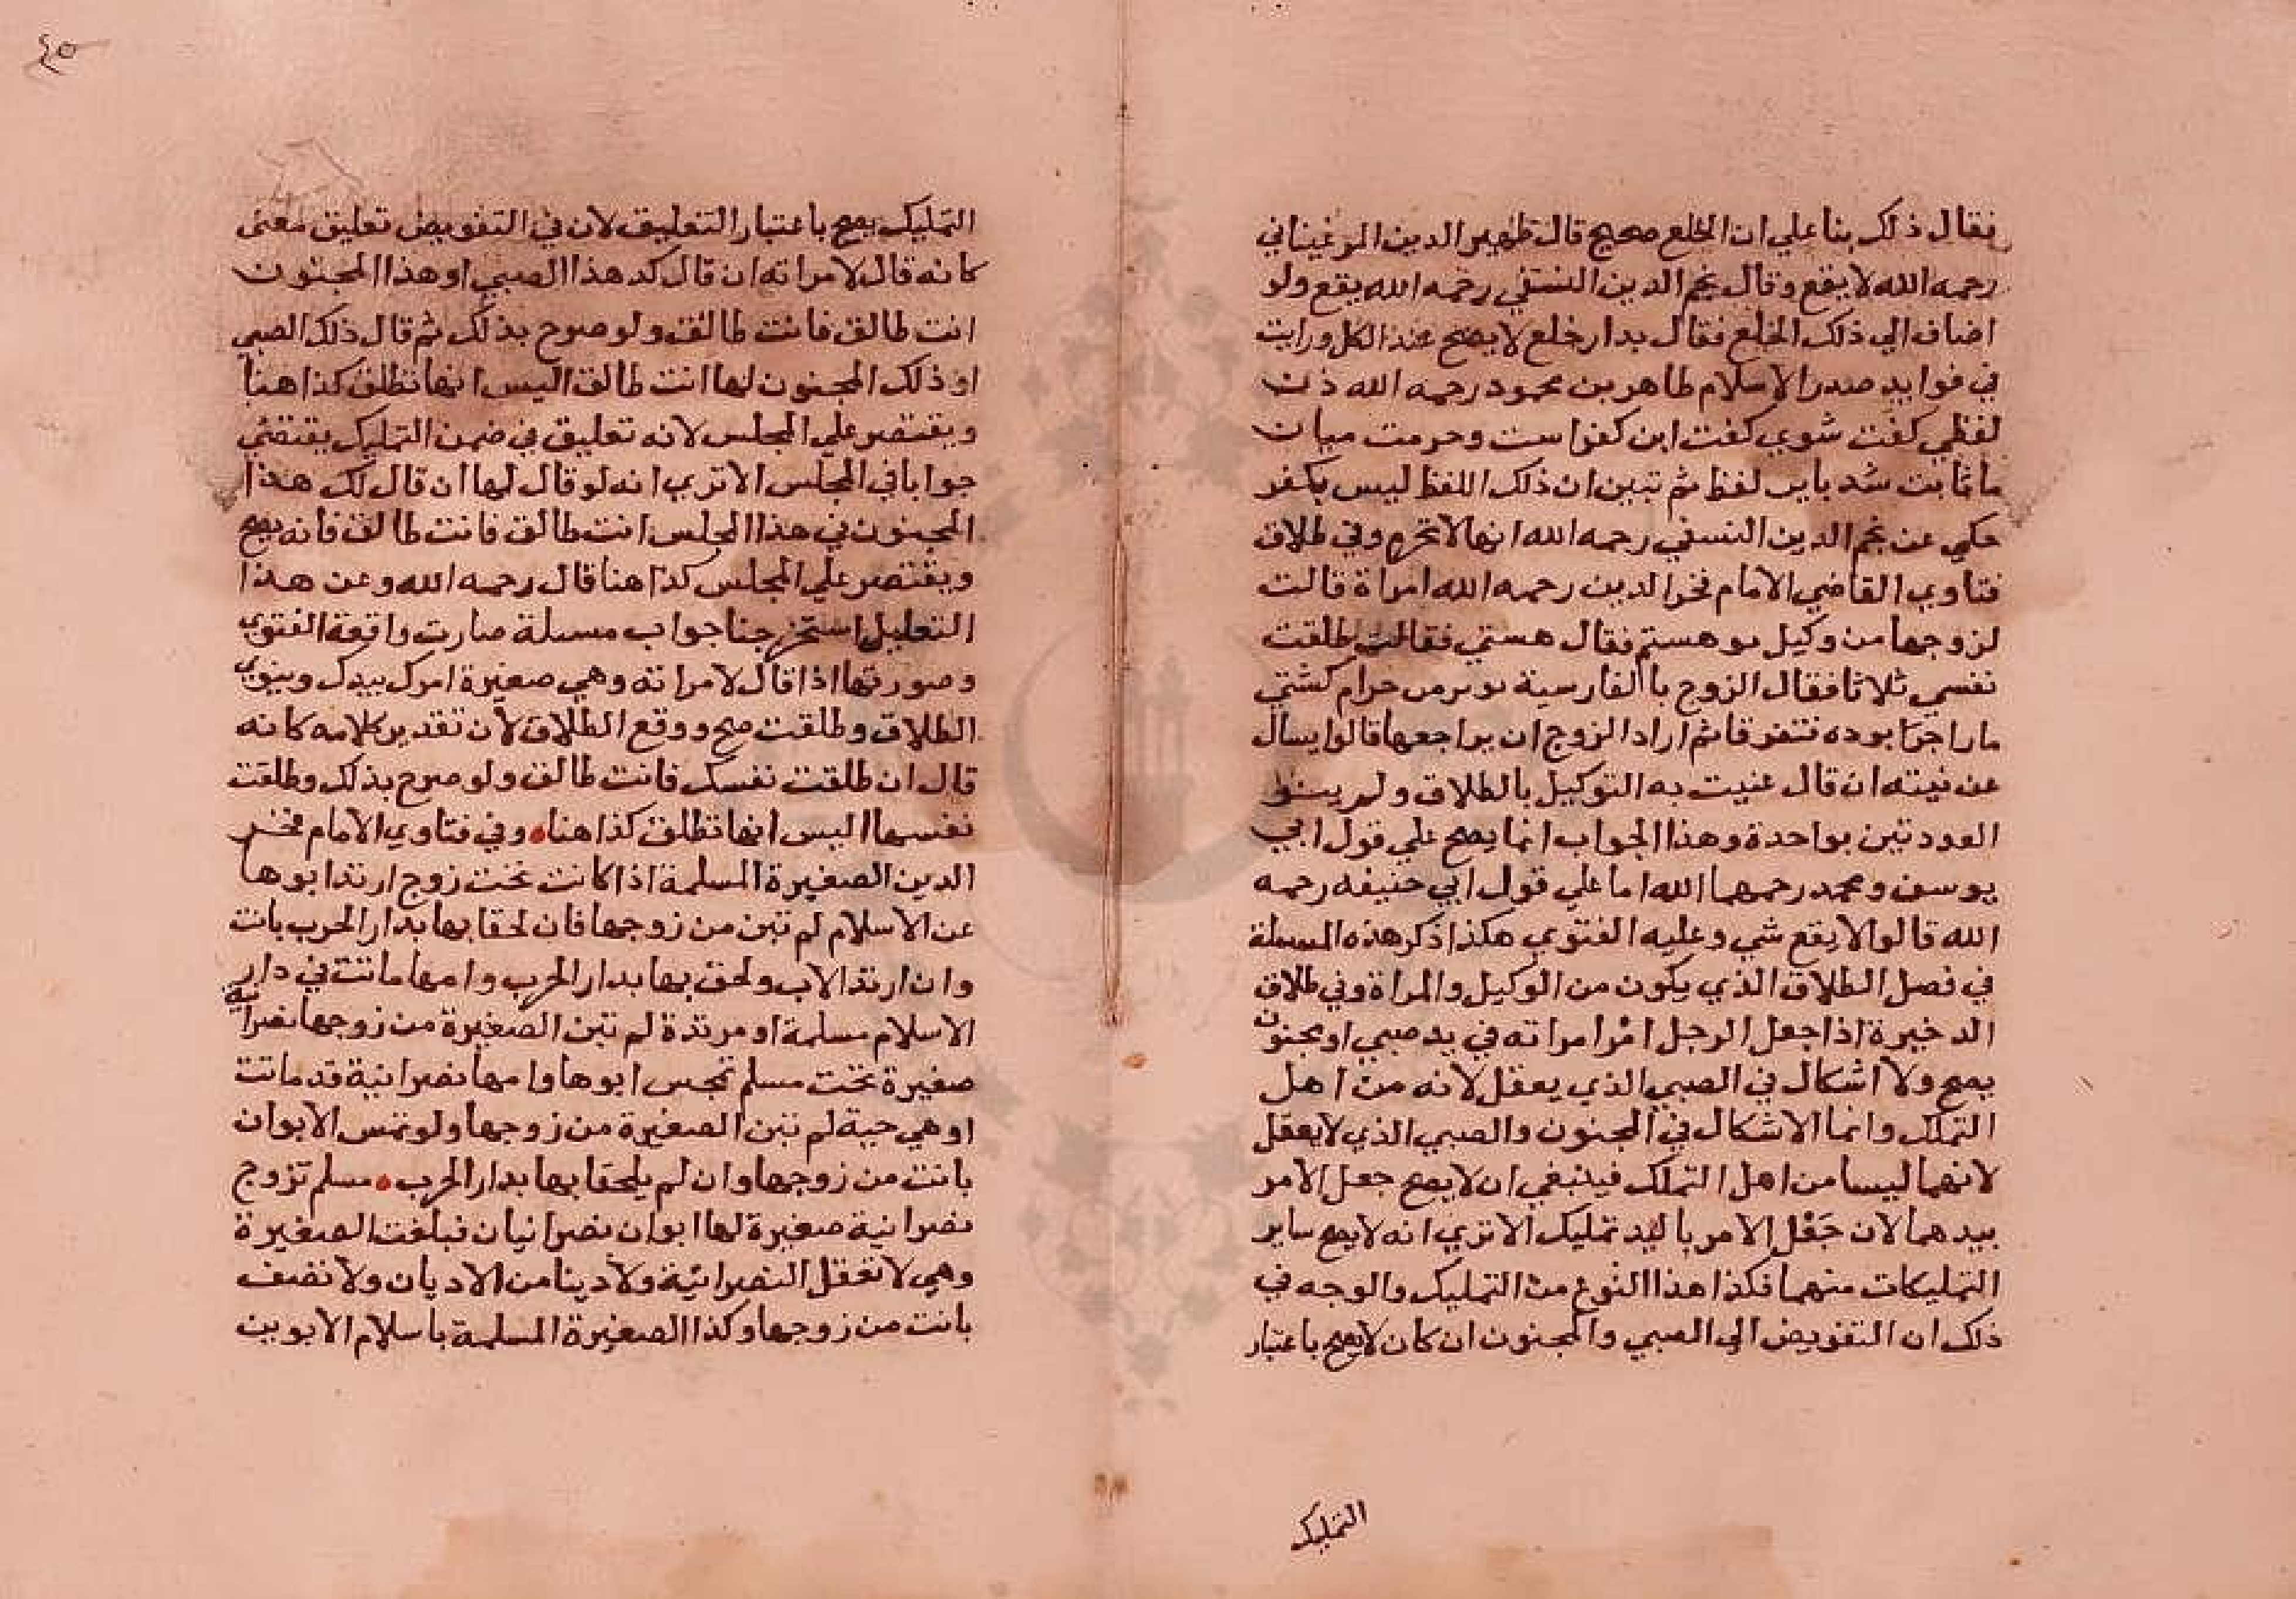 فقال ذلك بنا علي ان الخلع صحيح قال ظهير الدين المرغيناني
رحمه الله لا يقع وقال نجم الدين النسفي رحمه الله يقع ولو
اضاف الي ذلك الخلع فقال بدار خلع لا يصح عند الكل ورايت
في فوايد صدر الاسلام طاهر بن محمود رحمه الله ذن
لفظي كفت شوي كفت اين كفر است وحرمت ميان
ما ثابت شد باين لفظ ثم تبين ان ذلك اللفظ ليس بكفر
حكي عن نجم الدين النسفي رحمه الله انها لا تحرم وفي طلاق
فتاوي القاضي الامام فخر الدين رحمه الله امراة قالت
لزوجها من وكيل تو هستم فقال هستي فقالت طلقت
نفسي ثلاثا فقال الزوج بالفارسية تو برمن حرام كشتي
مارا جدا بوده فتفرقا ثم اراد الزوج ان يراجعها قالوا يسال
عن نيته ان قال عنيت به التوكيل بالطلاق ولم ينو
العود تبين بواحدة وهذا الجواب انما يصح علي قول ابي
يوسف ومحمد رحمهما الله اما علي قول ابي حنيفه رحمه
الله قالوا لا يقع شي وعليه الفتوي هكذا ذكر هذه المسئلة
في فصل الطلاق الذي يكون من الوكيل والمراة وفي طلاق
الدخيرة اذا جعل الرجل امر امراته في يد صبي او مجنون
يصح ولا اشكال في الصبي الذي يعقل لانه من اهل
التملك وانما الاشكال في المجنون والصبي الذي لا يعقل
لانهما ليسا من اهل التملك فينبغي ان لا يصح جعل الامر
بيدهما لان جعل الامر باليد تمليك الا تري انه لا يصح ساير
التمليكات منهما فكذا هذا النوع من التمليك والوجه في
ذلك ان التفويض الي الصبي والمجنون ان كان لا يصح باعتبار
التمليك
٤٥
التمليك يصح باعتبار التعليق لان في التفويض تعليق معني
كانه قال لامراته ان قال لك هذا الصبي او هذا المجنون
انت طالق فانت طالق ولو صرح بذلك ثم قال ذلك الصبي
او ذلك المجنون لها انت طالق اليس انها تطلق كذا هنا
ويقتصر علي المجلس لانه تعليق في ضمن التمليك يقتضي
جوابا في المجلس الا تري انه لو قال لها ان قال لك هذا
المجنون في هذا المجلس انت طالق فانت طالق فانه يصح
ويقتصر علي المجلس كذا هنا قال رحمه الله وعن هذا
التعليل استخرجنا جواب مسئلة صارت واقعة الفتوي
وصورتها اذا قال لامراته وهي صغيرة امرك بيدك وينوي
الطلاق وطلقت صح ووقع الطلاق لان تقدير كلامه كانه
قال ان طلقت نفسك فانت طالق ولو صرح بذلك وطلقت
نفسها اليس انها تطلق كذا هنا وفي فتاوي الامام فخر
الدين الصغيرة المسلمة اذا كانت تحت زوج ارتد ابوها
عن الاسلام لم تبن من زوجها فان لحقا بها بدار الحرب بانت
وان ارتد الاب ولحق بها بدار الحرب وامها ماتت في دار
الاسلام مسلمة او مرتدة لم تبن الصغيرة من زوجها نصرانية
صغيرة تحت مسلم تمجس ابوها وامها نصرانية قد ماتت
او هي حية لم تبن الصغيرة من زوجها ولو تمجس الابوان
بانت من زوجها وان لم يلحقا بها بدار الحرب مسلم تزوج
نصرانية صغيرة لها ابوان نصرانيان فبلغت الصغيرة
وهي لا تعقل النصرانية ولا دينا من الاديان ولا تصف
بانت من زوجها وكذا الصغيرة المسلمة باسلام الابوين